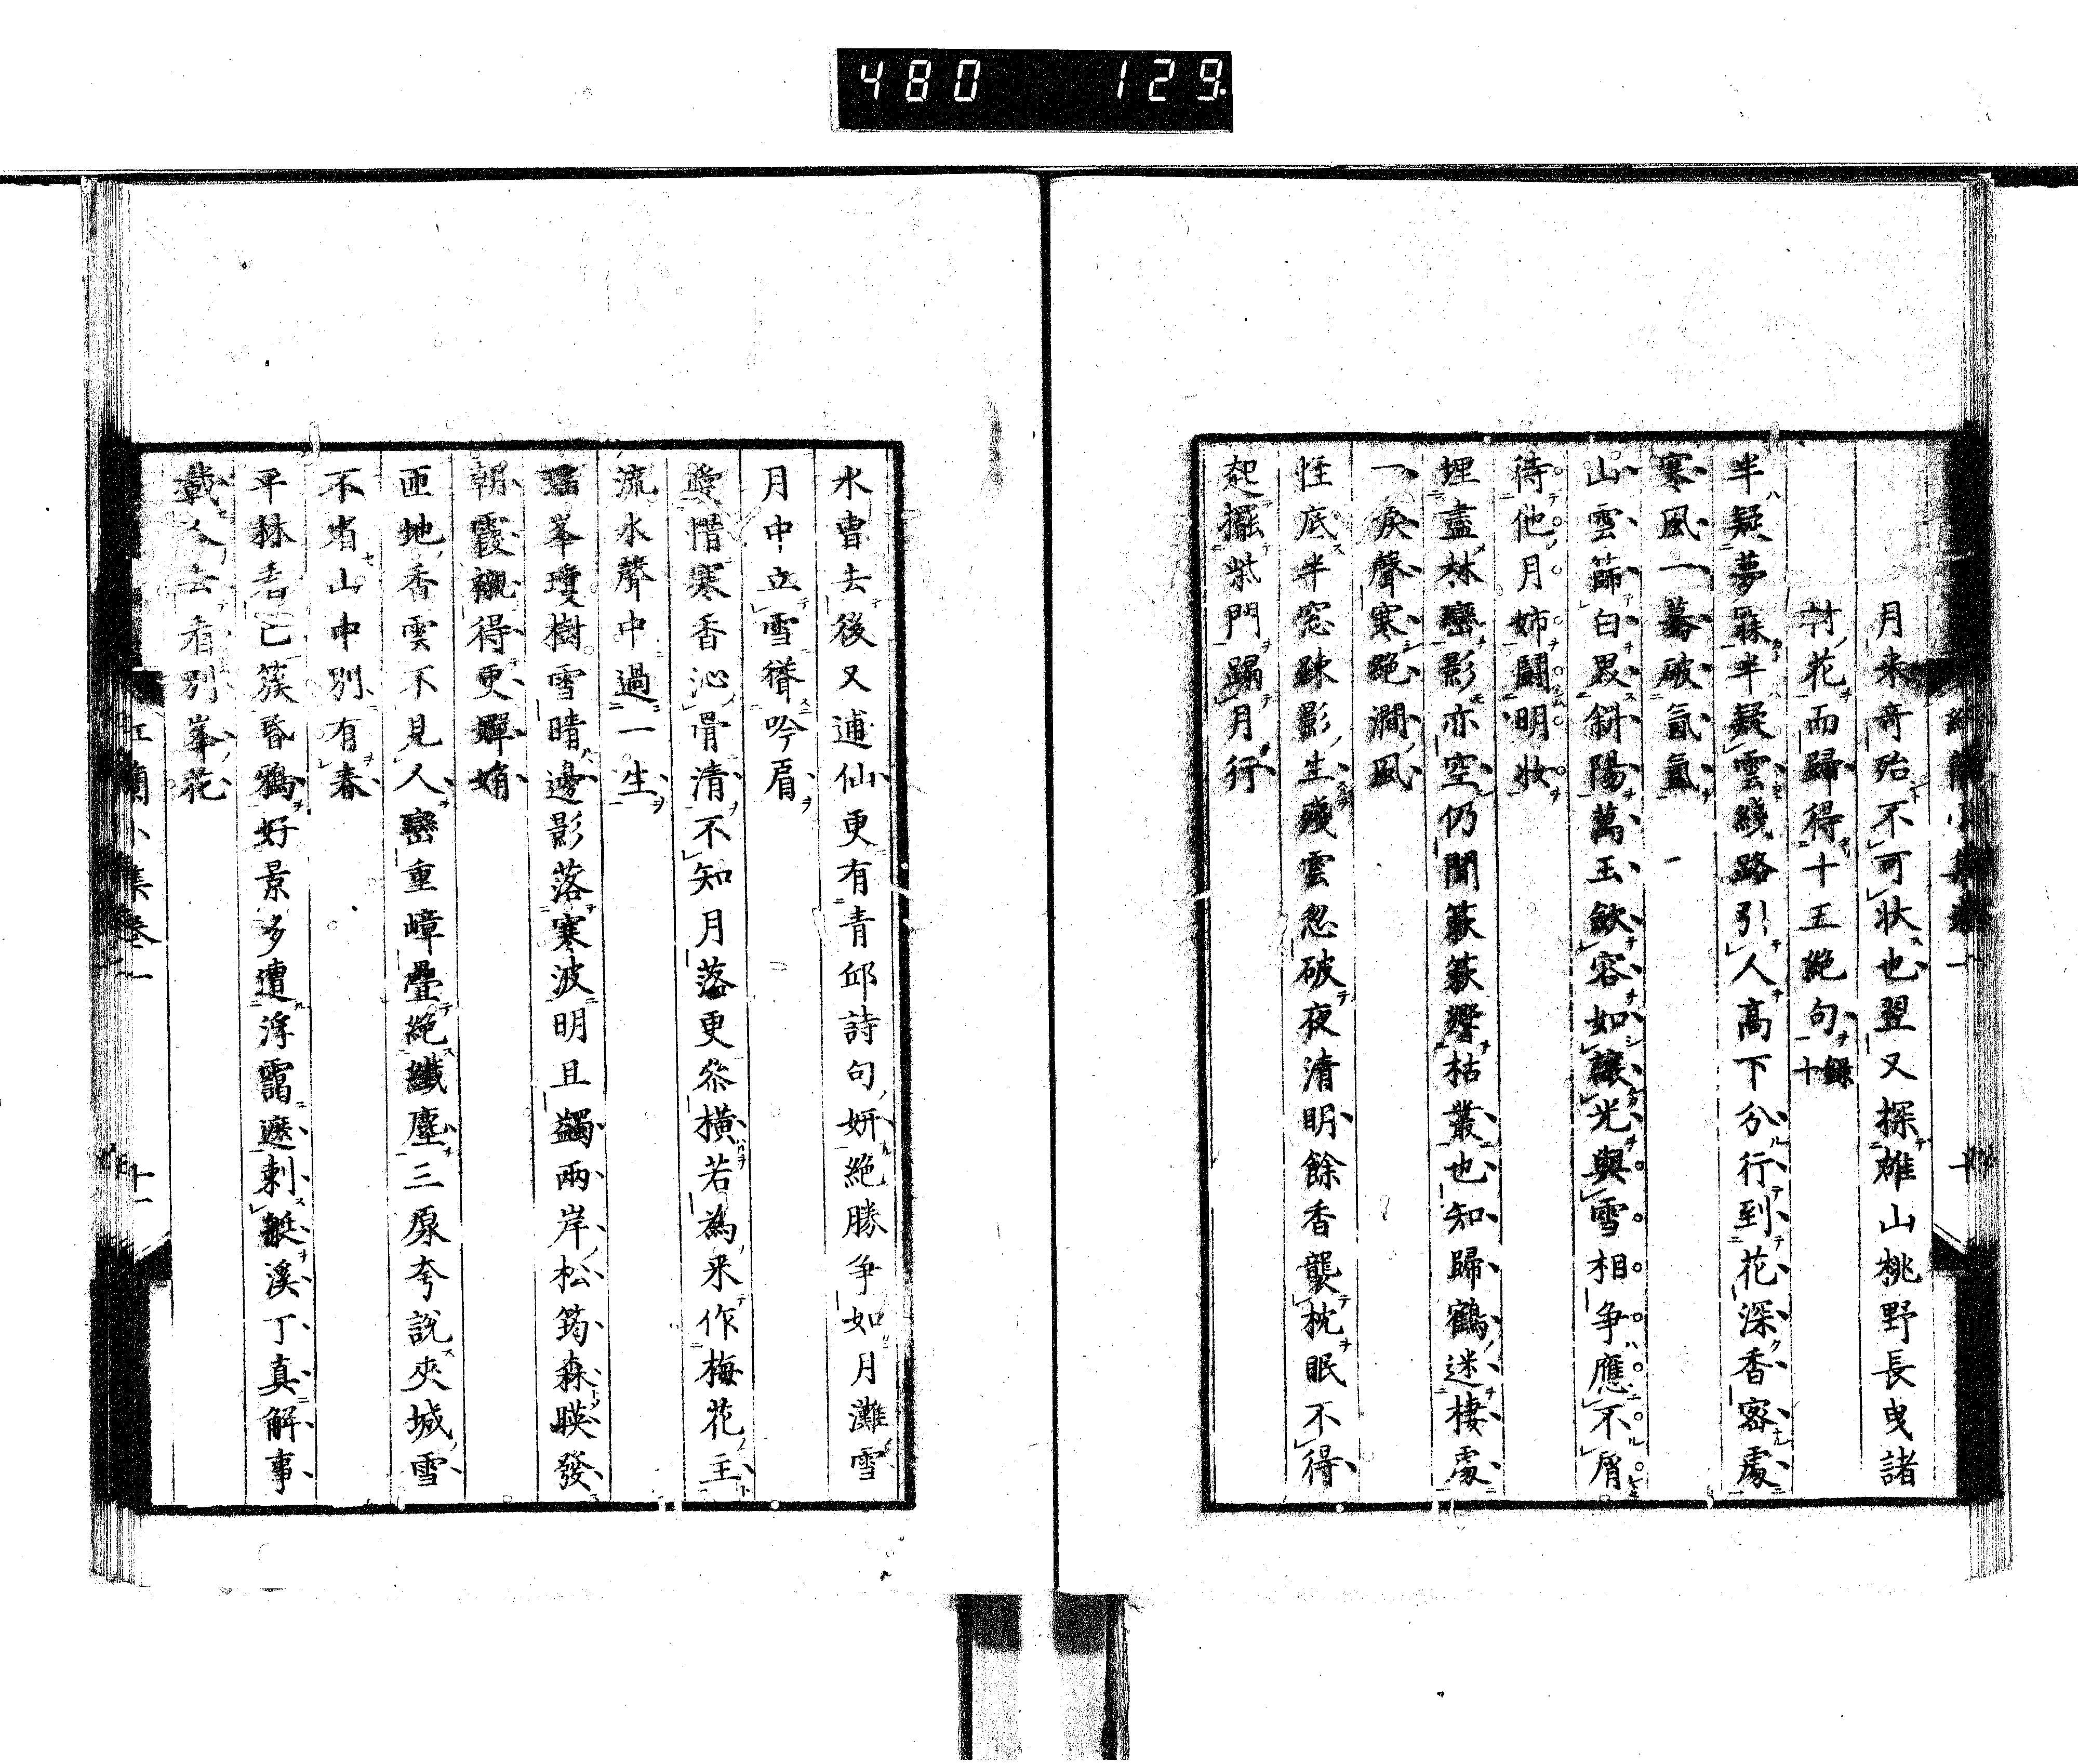 480 129
月来奇殆不可状也翌又探雄山桃野長曳諸
村花而歸得十五絶句錄十
半疑夢寐半疑雲綫路引人高下分行到花深香密處
寒風一驀破氤氳
山雲篩白畏斜陽萬玉歛容如讓光與雪相争應不屑
待他月姉鬪明妝
埋盡林巒影亦空仍聞簌簌響枯叢也知歸鶴迷棲處
一戻聲寒絶澗風
恠底半窓疎影生殘雲忽破夜清明餘香襲枕眠不得
起擺柴門蹋月行
水曹去後又逋仙更有青邱詩句妍絶勝争如月灘雪
月中立雪聳吟眉
愛惜寒香沁骨清不知月落更叅橫若為来作梅花主
流水聲中過一生
瑤峯瓊樹雪晴邊影落寒波明且蠲兩岸松筠森暎發
朝霞襯得更嬋娟
匝地香雲不見人巒重嶂疊絶纖塵三原夸說夾城雪
不省山中別有春
平林已簇昏鴉好景多遭浮靄遮刺艇溪丁真解事
載人去看別峯花
紅蘭小集卷一 十一